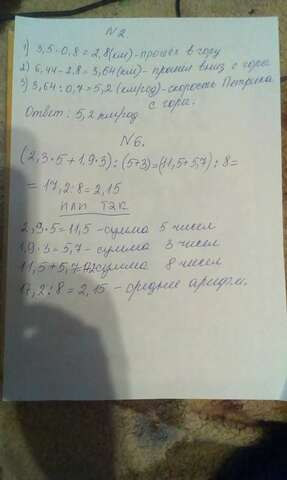 N2.
1) 3,5·0,8=2,8(км)-прошёл в гору
2) 6,44-2,8=3,64(км)-прошел вниз с горы
3) 3,64:0,7=5,2(км/год)-скорость Петрика
с гори.
Ответ: 5,2 км/год
N6.
(2,3·5+1,9·3):(5+3)=(11,5+5,7):8=
=17,2:8=2,15
ИЛИ ТАК
2,3·5=11,5-сумма 5 чисел
1,9·3=5,7-сумма 3 чисел
11,5+5,7= сумма 8 чисел
17,2:8=2,15-среднее арифм.